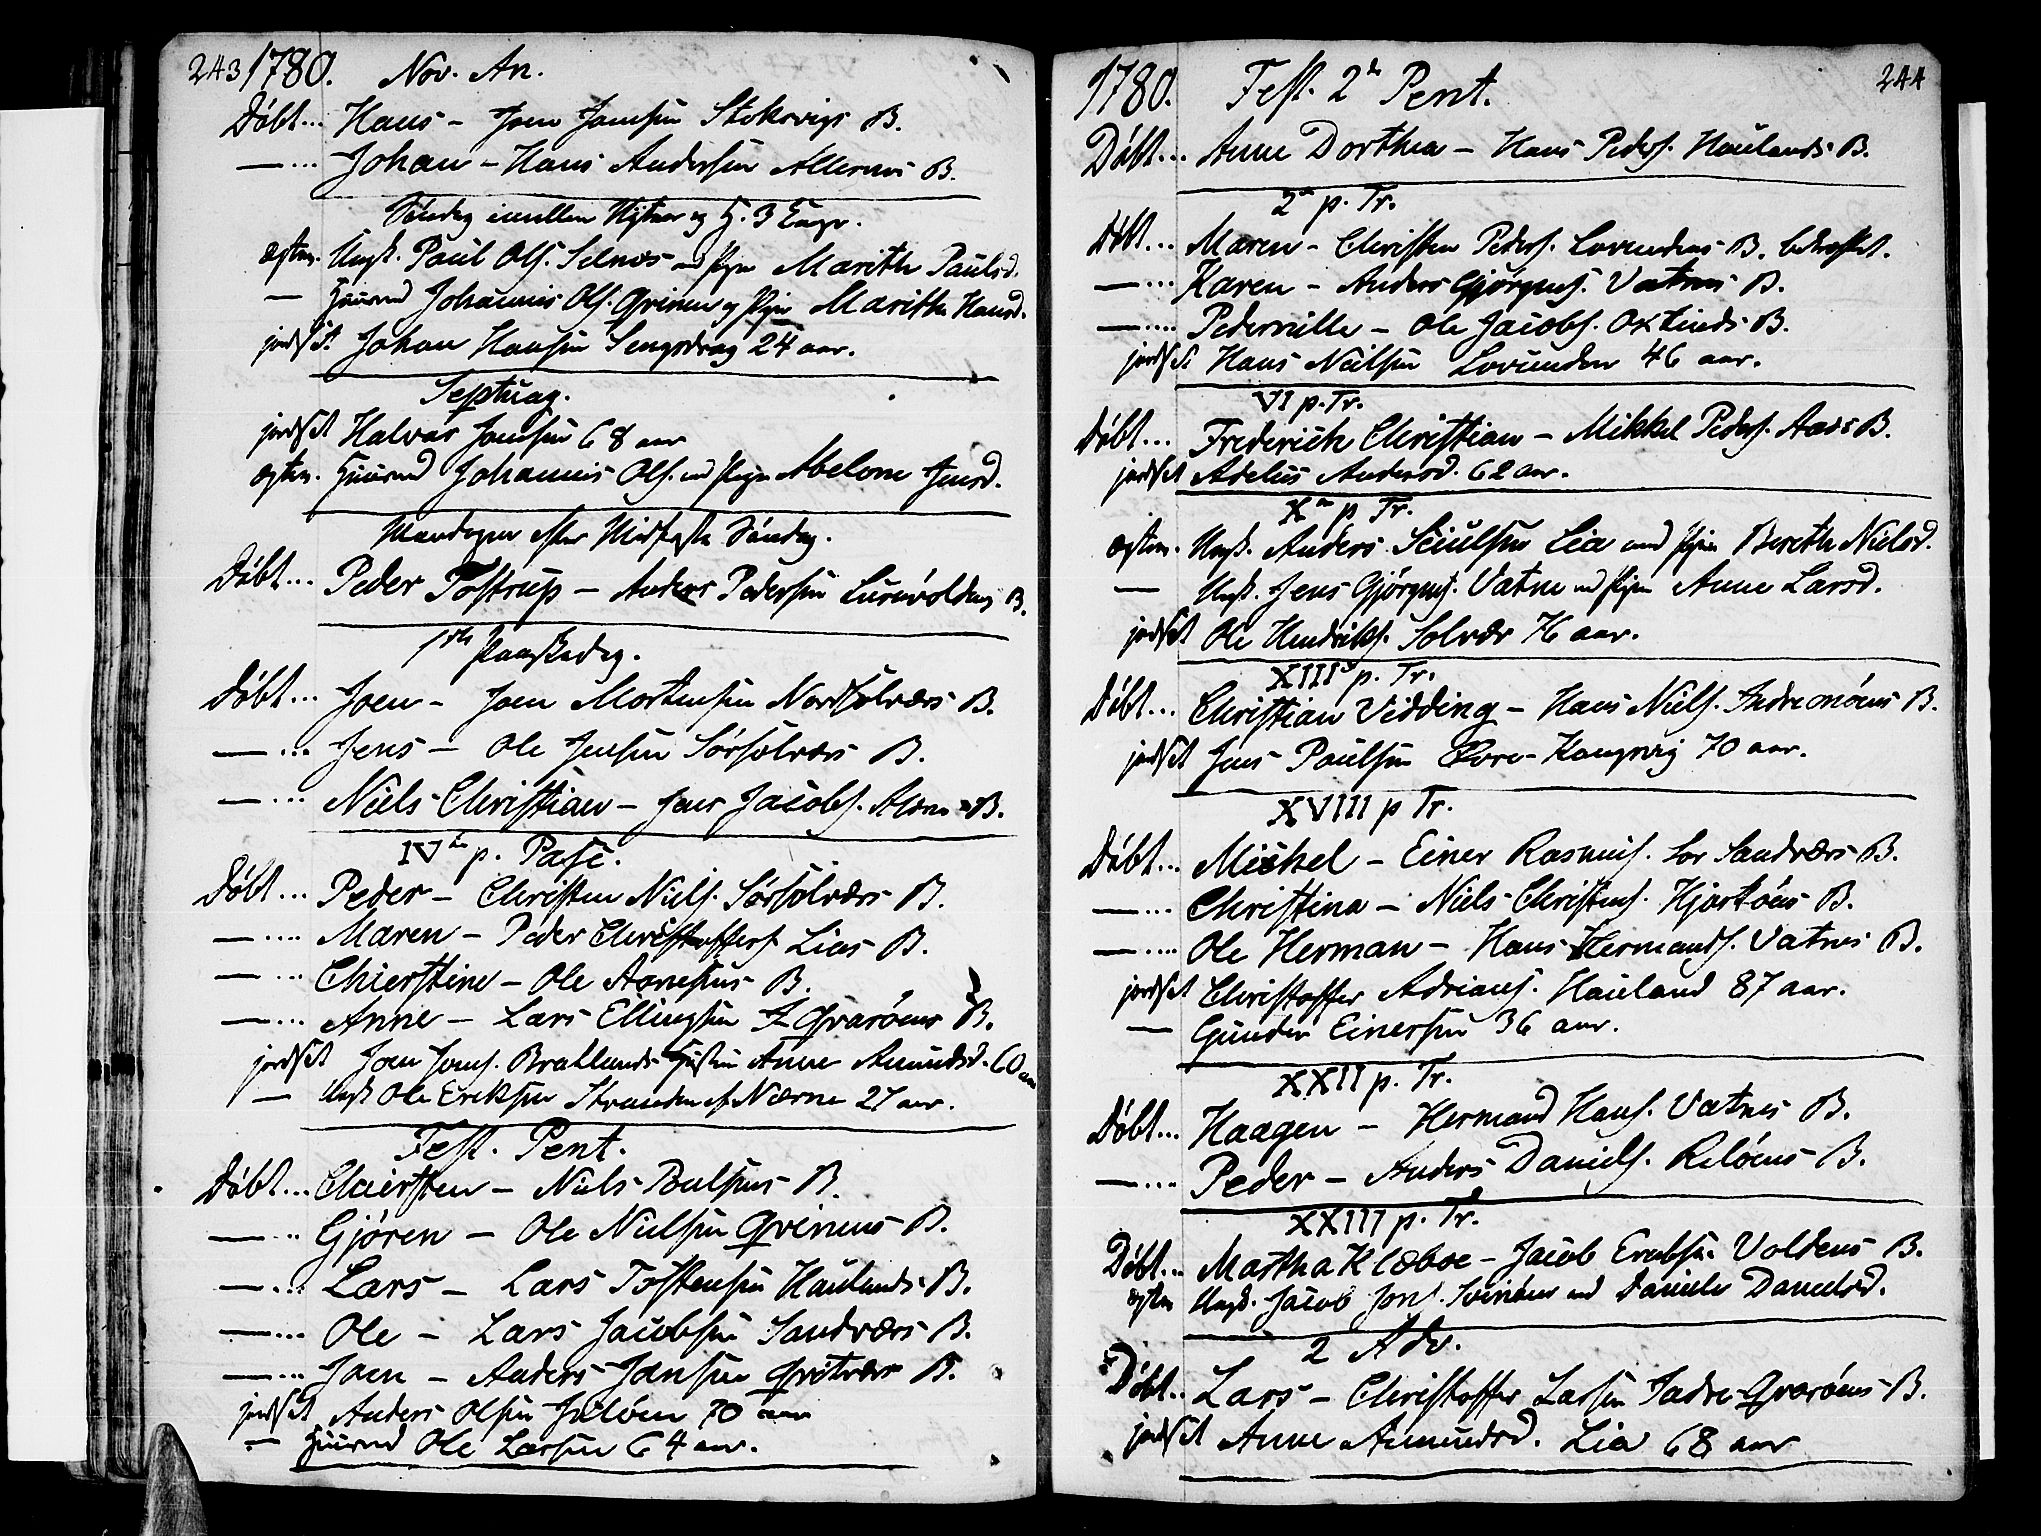 243 1780. Nov. An.
Döbt... Hans - Joen Jonsen Stoksvigs B.
— ... Johan - Hans Andersen Allernes B.
Söndag imellem Nytaar og H. 3 Konger.
ægtev. Ungk. Paul Ols. Selnes med Pigen Marith Paulsd.
— Huusmd Johannis Ols. Qvinen og Pigen Marith Hansd.
jordset Johan Hansen Sengsdrag 24 aar.
Septuag.
jordset Halvar Jonsen 68 aar
ægtev. Huusmd Johannis Ols. md Pigen Abelone Jensd.
Mandagen efter Midfaste Söndag.
Döbt... Peder Tostrup - Anders Pedersen Lurövoldens B.
1ste Paaskedag.
Döbt... Joen - Joen Mortensen Nordsolværs B.
— ... Jens - Ole Jensen Sörsolværs B.
— ... Niels Christian - Jens Jacobs. B.
IVde p. Pasc.
Döbt... Peder - Christen Niels. Sörsolværs B.
— .... Maren - Peder Christoffers. Lias B.
— ... Chierstine - Ole Aanesens B.
— .... Anne - Lars Ellingsen I. Qvaröens B.
jordset Joen Jons. Bratlands Hustru Anne Amundsd. 60 aar
— Ungk Ole Eriksen Stranden af Nærne 27 aar.
Fest. Pent.
Döbt... Chiersten - Niels Poulsens B.
— .. Gjören - Ole Nielsen Qvinens B.
— ... Lars - Lars Tostensen Haulands B.
— ... Ole - Lars Jacobsen Sandværs B.
— ... Joen - Anders Jonsen Qvitvær B.
jordset Anders Olsen 70 aar
— Huusmd Ole Larsen 64 aar.
1780. Fest. 2de Pent. 244
Döbt... Anne Dorthea - Hans Peders. Haulands B.
2de p. Tr.
Döbt... Maren - Christen Peders. Lovundens B.
— ... Karen - Anders Gjörgens. Vatnes B.
— .... Pedernille - Ole Jacobs. Oxtinds B.
jordset Hans Neilsen Lovunden 46 aar.
VI p. Tr.
Döbt... Frederich Christian - Mikkel Peders. Aaes B.
jordset Adelus Andersd. 62 aar.
X p Tr.
ægtev. Ungk. Anders Siulsen Lia med Pigen Berith Nielsd.
— Ungk. Jens Gjörgens. Vatne md Pigen Anne Larsd.
jordset Ole Hendriks. Solvær 76 aar.
XIII p. Tr.
Döbt... Christian Vidding - Hans Niels. Indremöens B.
jordset Jens Paulsen Kongsvig 70 aar.
XVIII p Tr.
Döbt... Mickel - Einer Rasmus. Sör Sandværs B.
— ... Christina - Niels Christens. Hjartöens B.
— .... Ole Herman - Hans Hermands. Vatnes B.
jordset Christoffer Adrians. Hauland 87 aar.
— Gunder Einersen 36 aar.
XXII p. Tr.
Döbt... Haagen - Hermand Hans. Vatnes B.
— .... Peder - Anders Daniels. Relöens B.
XXIII p. Tr.
Döbt... Martha Klæboe - Jacob Voldens B.
ægtev Ungk. Jacob Jons. Svinöens md Daniele Danielsd.
2 Adv.
Döbt.. Lars - Christoffer Larsen Indre Qvaröens B.
jordset Anne Amundsd. Lia 68 aar